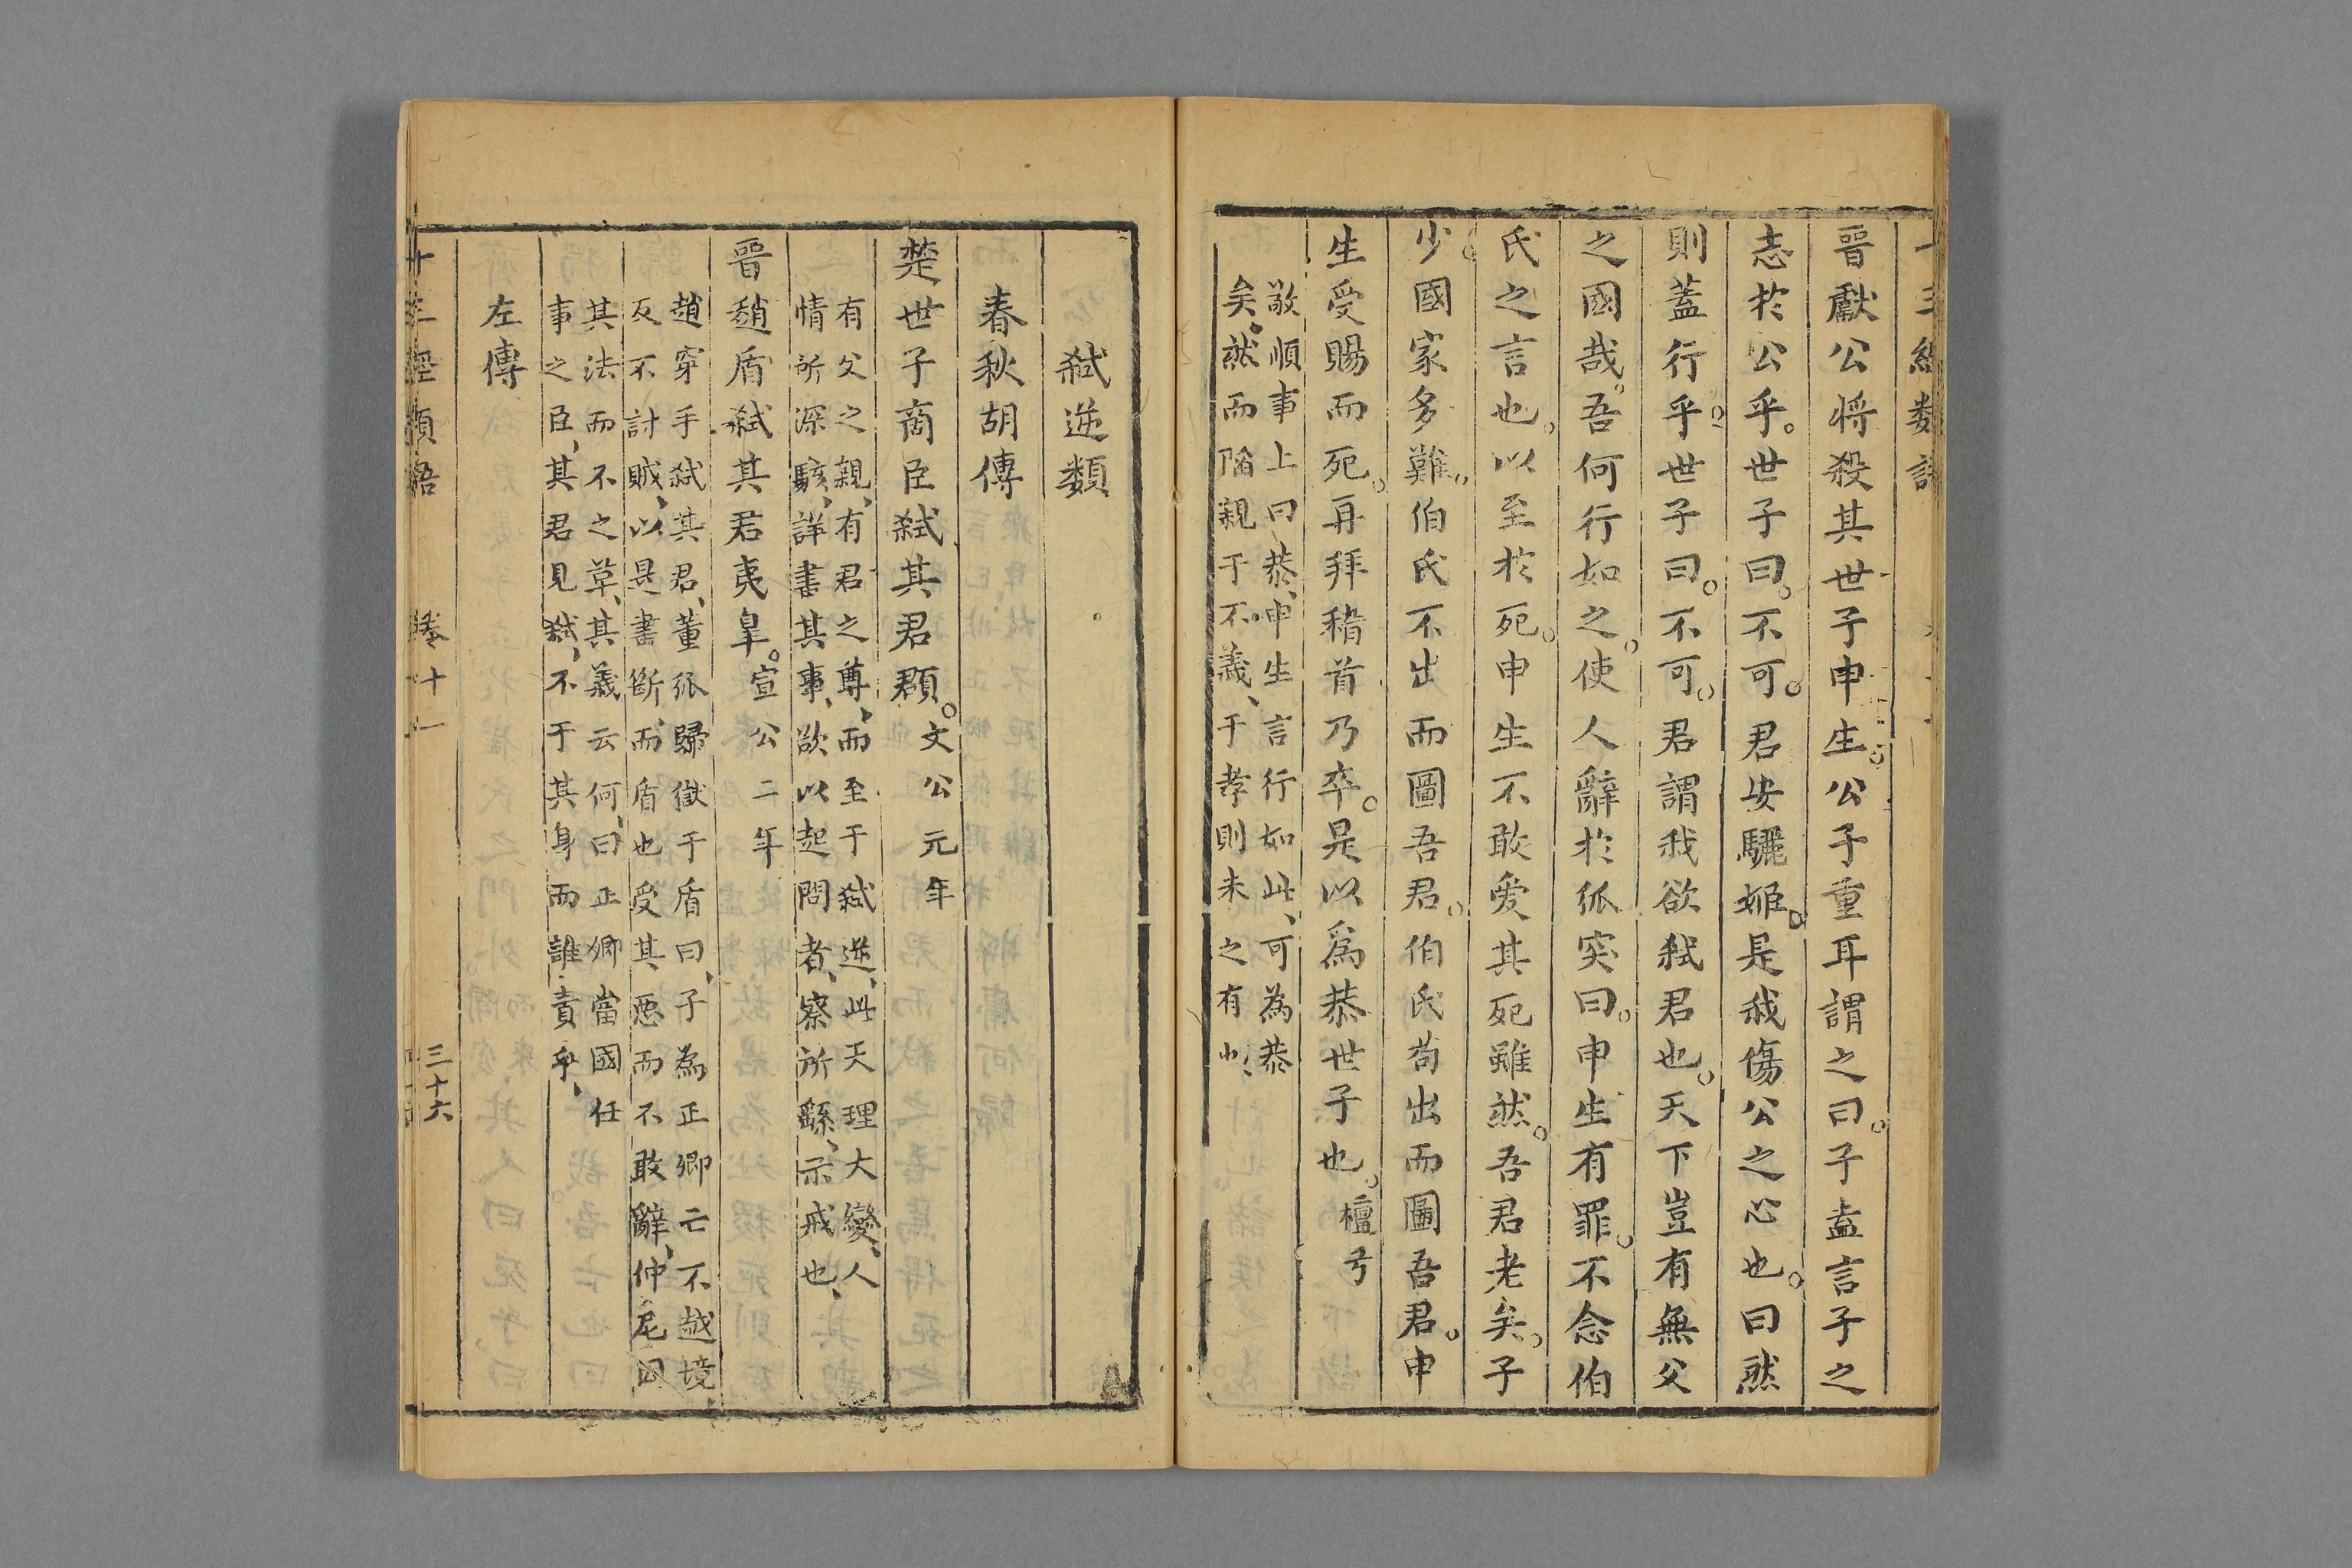 十三經類語
晉獻公將殺其世子申生。公子重耳謂之曰。子盍言子之
志於公乎。世子曰。不可。君安驪姬。是我傷公之心也。曰然
則蓋行乎。世子曰。不可。君謂我欲弒君也。天下豈有無父
之國哉。吾何行如之。使人辭於狐突曰。申生有罪。不念伯
氏之言也。以至於死。申生不敢愛其死雖然。吾君老矣。子
少。國家多難。伯氏不出而圖吾君。伯氏茍出而圖吾君。申
生受賜而死。再拜稽首乃卒。是以為恭世子也。檀弓
敬順事上曰恭、申生言行如此、可為恭
矣、然而陷親于不義、于孝則未之有也、
弒逆類
春秋胡傳
楚世子商臣弒其君頵。文公元年
有父之親、有君之尊、而至于弒逆、此天理大變、人
情所深駭、詳書其事、欲以起問者、察所繇、示戒也、
晉趙盾弒其君夷臯。宣公二年
趙穿手弒其君、董狐歸獄于盾曰、子為正卿亡不越境、
反不討賊、以是書斷、而盾也受其惡而不敢辭、仲尼因
其法而不之草、其義云何、曰正卿當國任
事之臣、其君見弒、不于其身而誰責乎、
左傳
十三經類語 卷十一 三十六